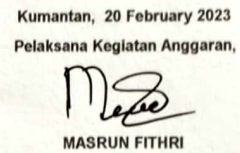 Kumantan, 20 February 2023
Pelaksana Kegiatan Anggaran,
MASRUN FITHRI